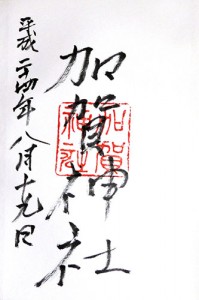 加賀神社
加賀
神社
平成二十四年八月十九日